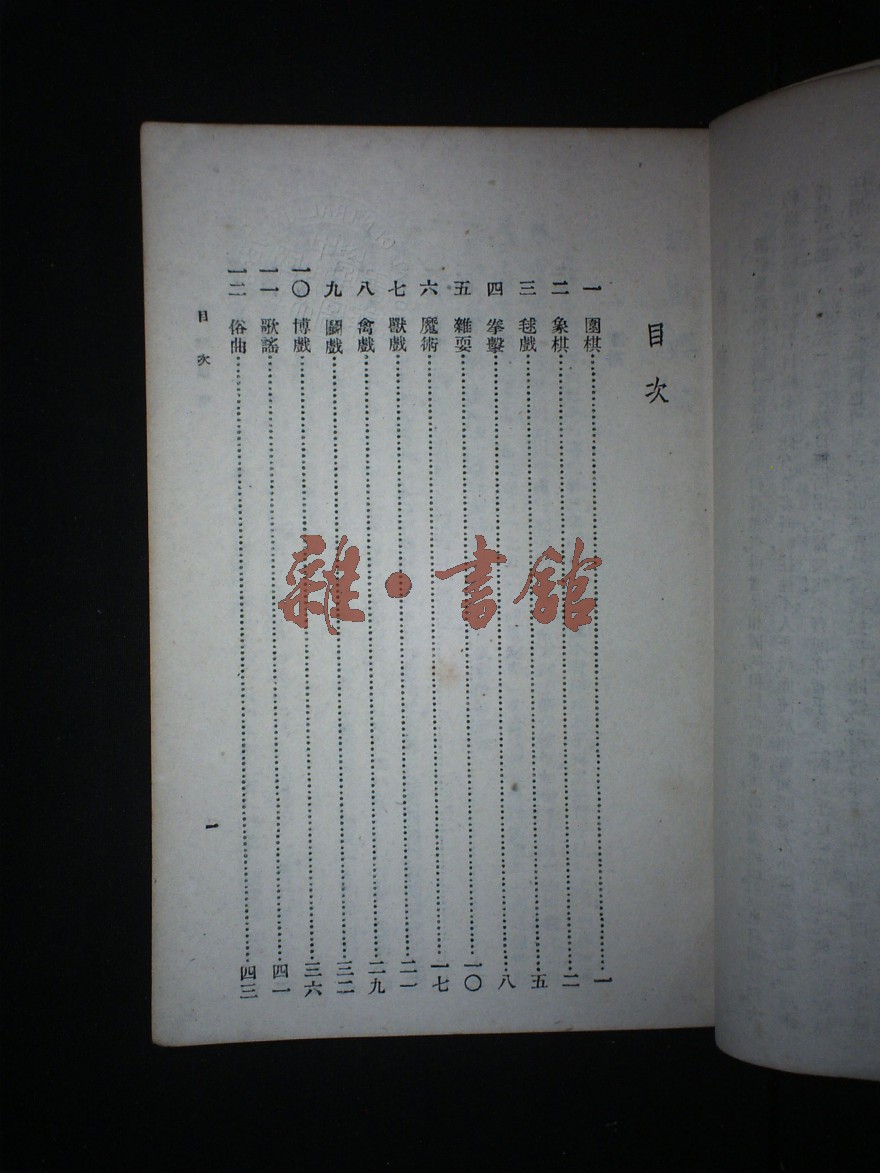 目次
一 圍棋 一
二 象棋 二
三 毬戲 五
四 拳擊 八
五 雜耍 一〇
六 魔術 一七
七 獸戲 二一
八 禽戲 二九
九 鬬戲 三二
一〇 博戲 三六
一一 歌謠 四一
一二 俗曲 四三
目次
一
雜·書館